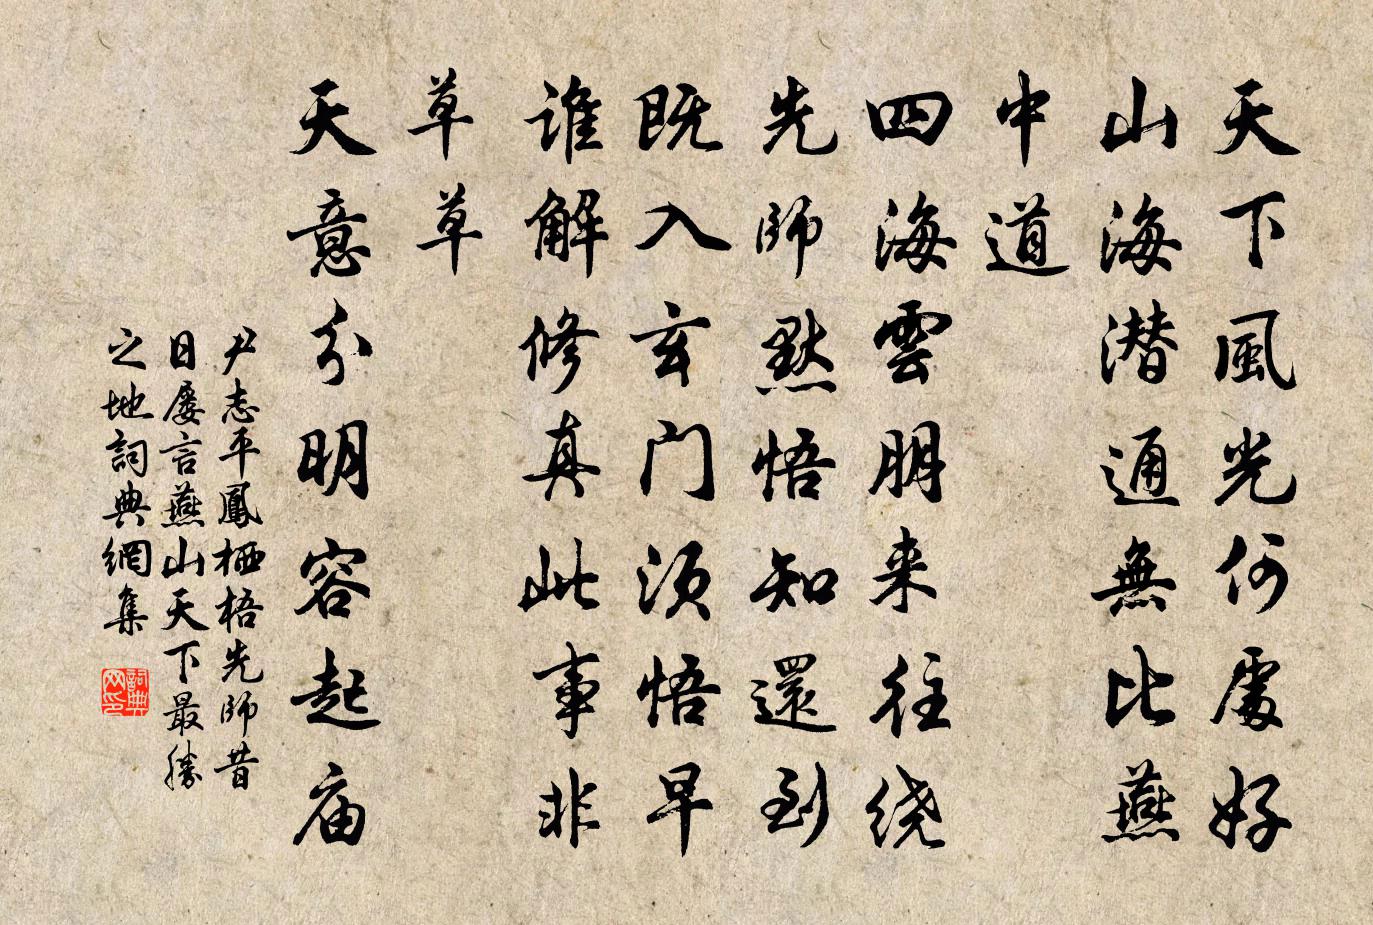 天下風光何處好
山海潜通無比燕
中道
四海雲朋来往绕
先師默悟知還到
既入玄门须悟早
谁解修真此事非
草草
天意分明容起庙
尹志平鳳栖梧先師昔
日屡言燕山天下最勝
之地詞典網集
詞典网印